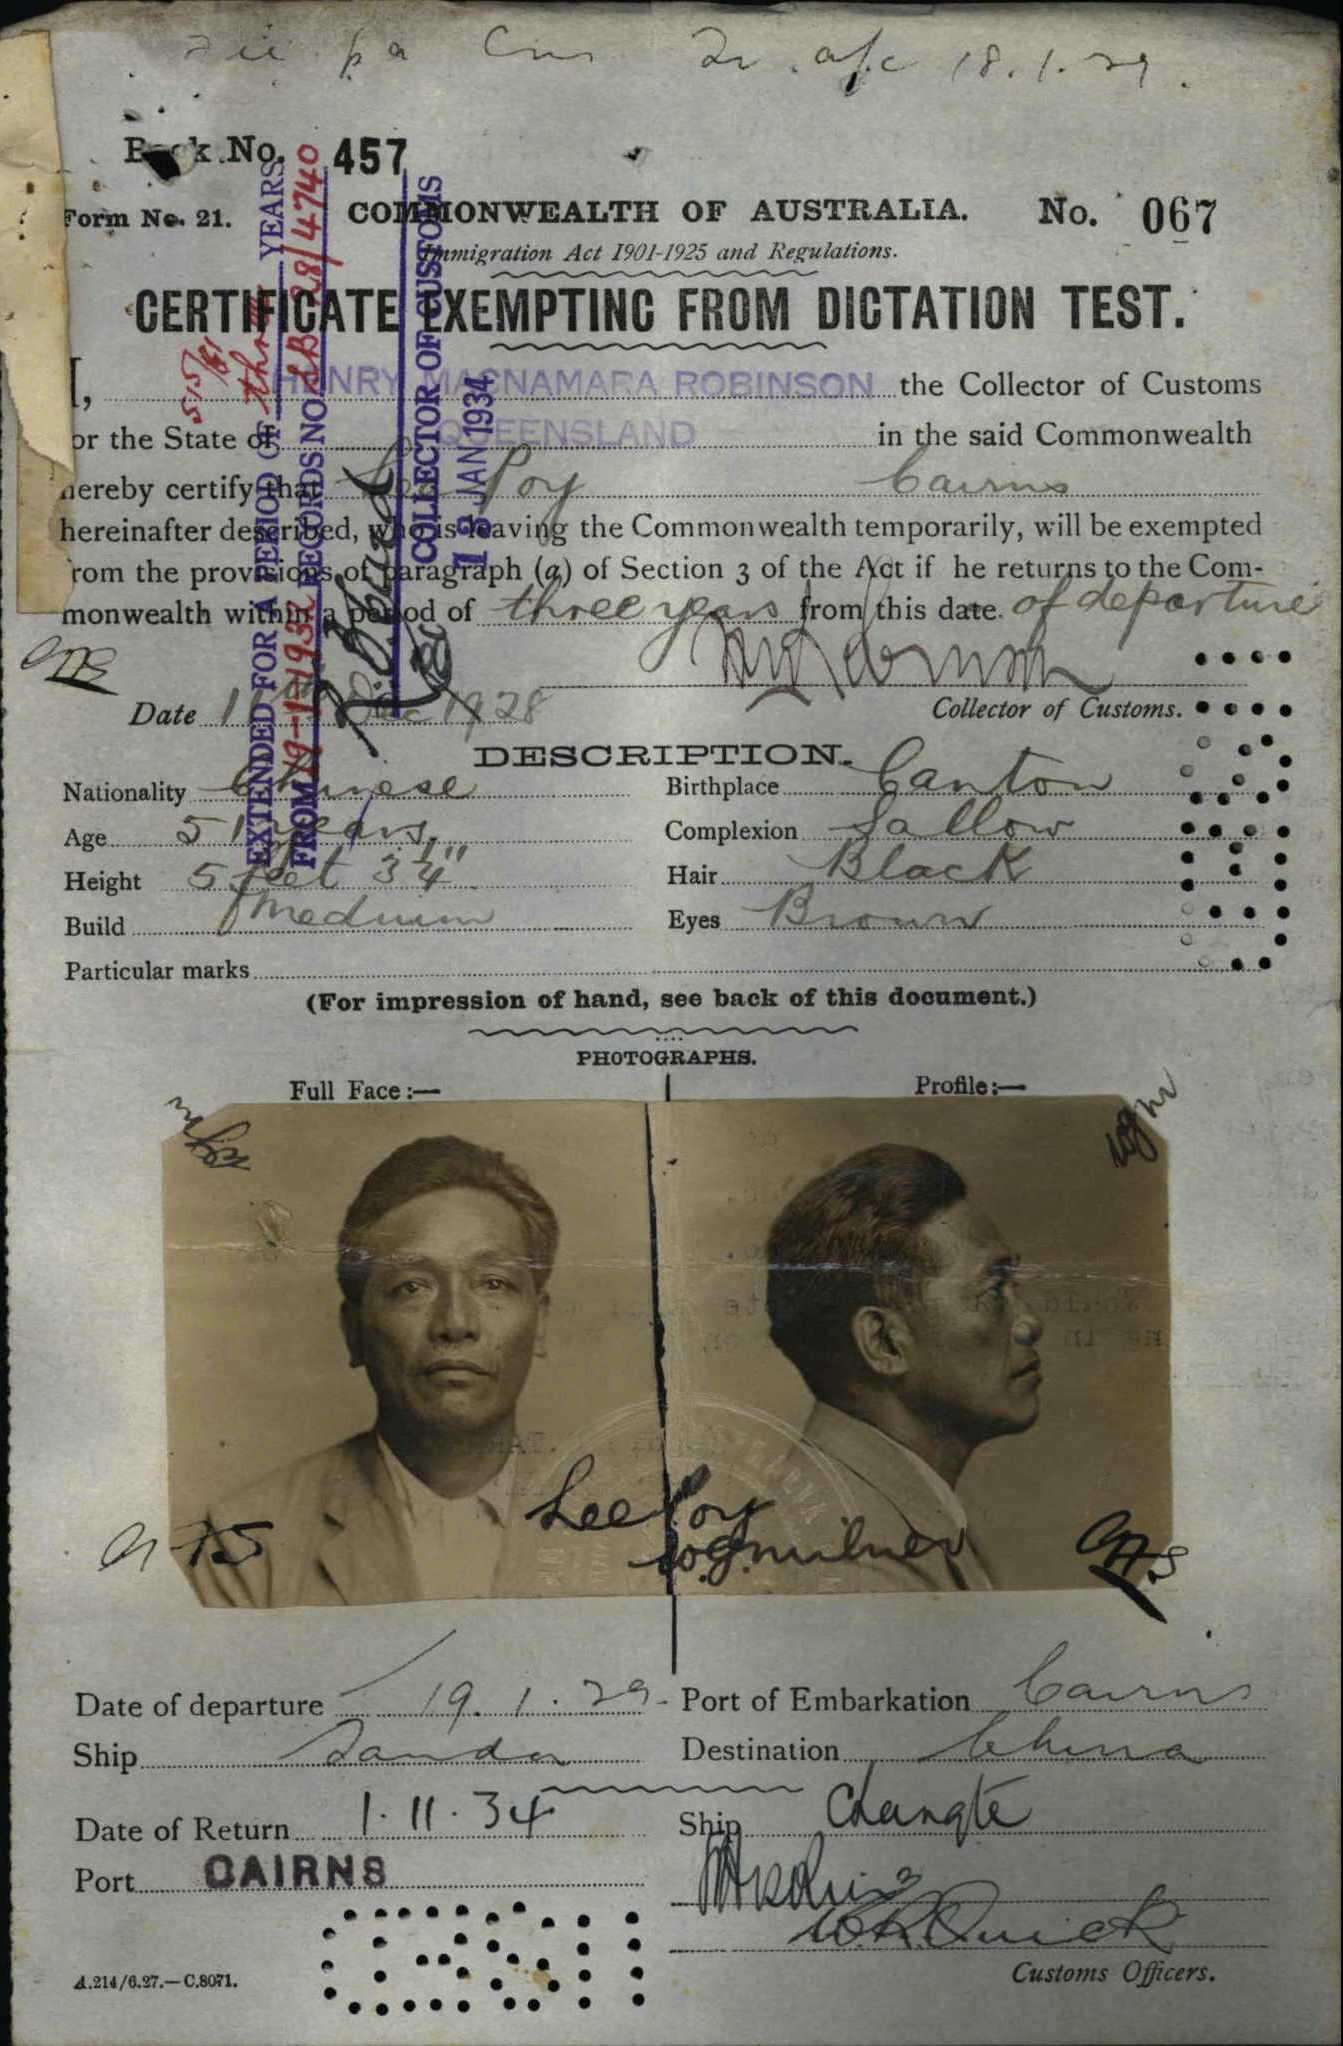 18.1.29.
Book No. 457
Form No. 21. COMMONWEALTH OF AUSTRALIA. No. 067
Immigration Act 1901-1925 and Regulations.
CERTIFICATE EXEMPTING FROM DICTATION TEST.
I, HENRY MACNAMARA ROBINSON the Collector of Customs
or the State of QUEENSLAND in the said Commonwealth
hereby certify that Lee Poy Cairns
hereinafter described, who is leaving the Commonwealth temporarily, will be exempted
from the provisions of paragraph (a) of Section 3 of the Act if he returns to the Com-
monwealth within a period of three years from this date of departure
EXTENDED FOR A PERIOD OF three YEARS
FROM 19-1-1932 RECORDS NO. 28/4740
COLLECTOR OF CUSTOMS
JAN 1934
Date Dec 1928 Collector of Customs.
DESCRIPTION.
Nationality Chinese Birthplace Canton
Age 51 years. Complexion Sallow
Height 5 feet 3 1/4" Hair Black
Build Medium Eyes Brown
Particular marks
(For impression of hand, see back of this document.)
PHOTOGRAPHS.
Full Face:— Profile:—
Lee Poy
W.G. Milner
Date of departure 19.1.29 Port of Embarkation Cairns
Ship Tanda Destination China
Date of Return 1.11.34 Ship Changte
Port CAIRNS
W.R. Quick
A.214/6.27.—C.8071. Customs Officers.